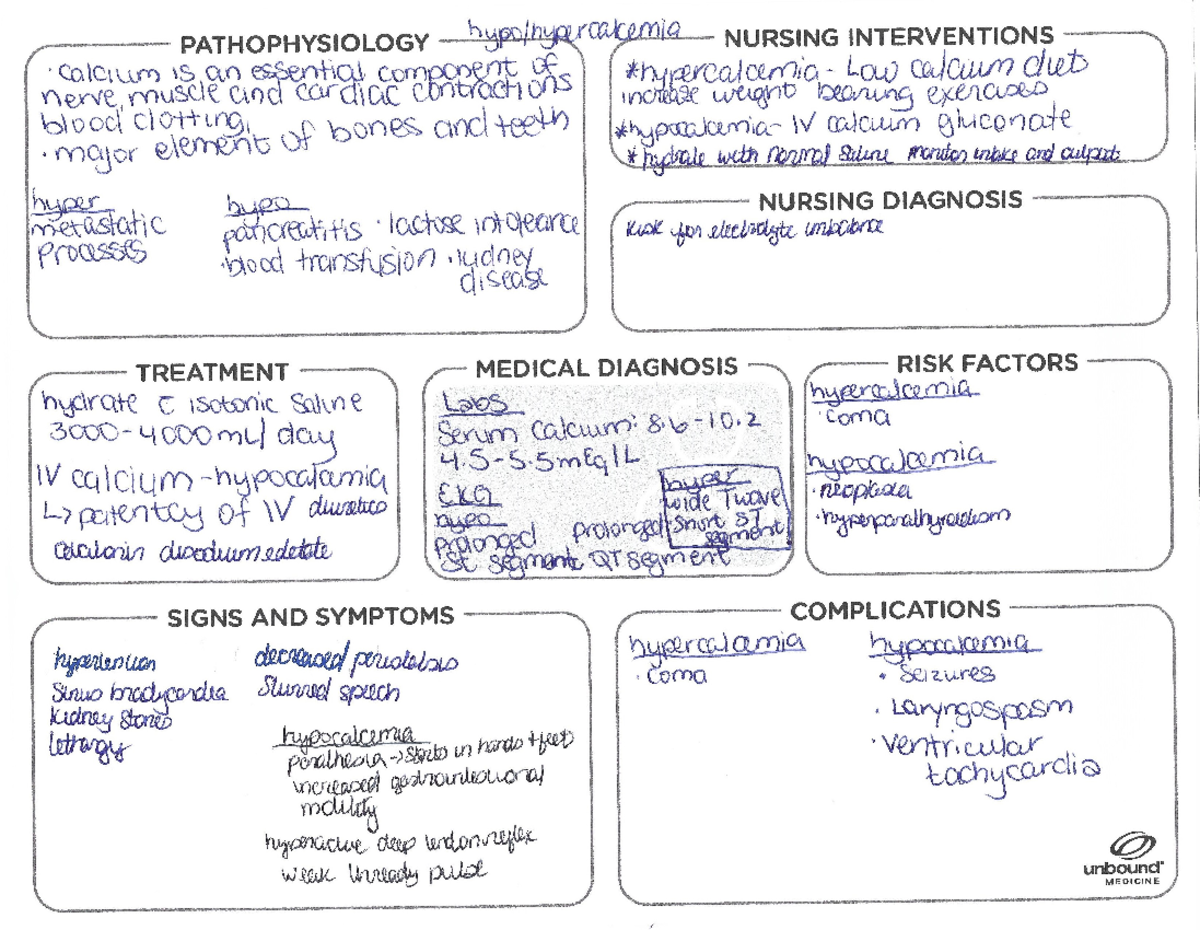 hypo/hypercalcemia
PATHOPHYSIOLOGY
· Calcium is an essential component of
nerve, muscle and cardiac contractions
blood clotting,
· major element of bones and teeth
hyper
metastatic
processes
hypo
pancreatitis · lactose intolerance
· blood transfusion · kidney
disease
NURSING INTERVENTIONS
*hypercalcemia - Low calcium diet
increase weight bearing exercises
*hypocalcemia - IV calcium gluconate
* hydrate with normal saline monitor intake and output
NURSING DIAGNOSIS
Risk for electrolyte imbalance
TREATMENT
hydrate c̄ isotonic saline
3000-4000mL/day
IV calcium - hypocalcemia
↳ patentcy of IV diuretics
disodium edetate
MEDICAL DIAGNOSIS
Labs
Serum Calcium: 8.6-10.2
4.5-5.5mEq/L
EKG
hypo
prolonged prolonged
ST segment QT segment
hyper
wide T wave
Short ST
segment
RISK FACTORS
hypercalcemia
· coma
hypocalcemia
· hyperparathyroidism
SIGNS AND SYMPTOMS
hypertension
Sinus bradycardia
Kidney stones
lethargy
decreased peristalsis
Slurred speech
hypocalcemia
→ starts in hands + feet
increased gastrointestional
motility
hyperactive deep tendon reflex
weak thready pulse
COMPLICATIONS
hypercalcemia
· coma
hypocalcemia
· Seizures
· Laryngospasm
· Ventricular
tachycardia
unbound
MEDICINE